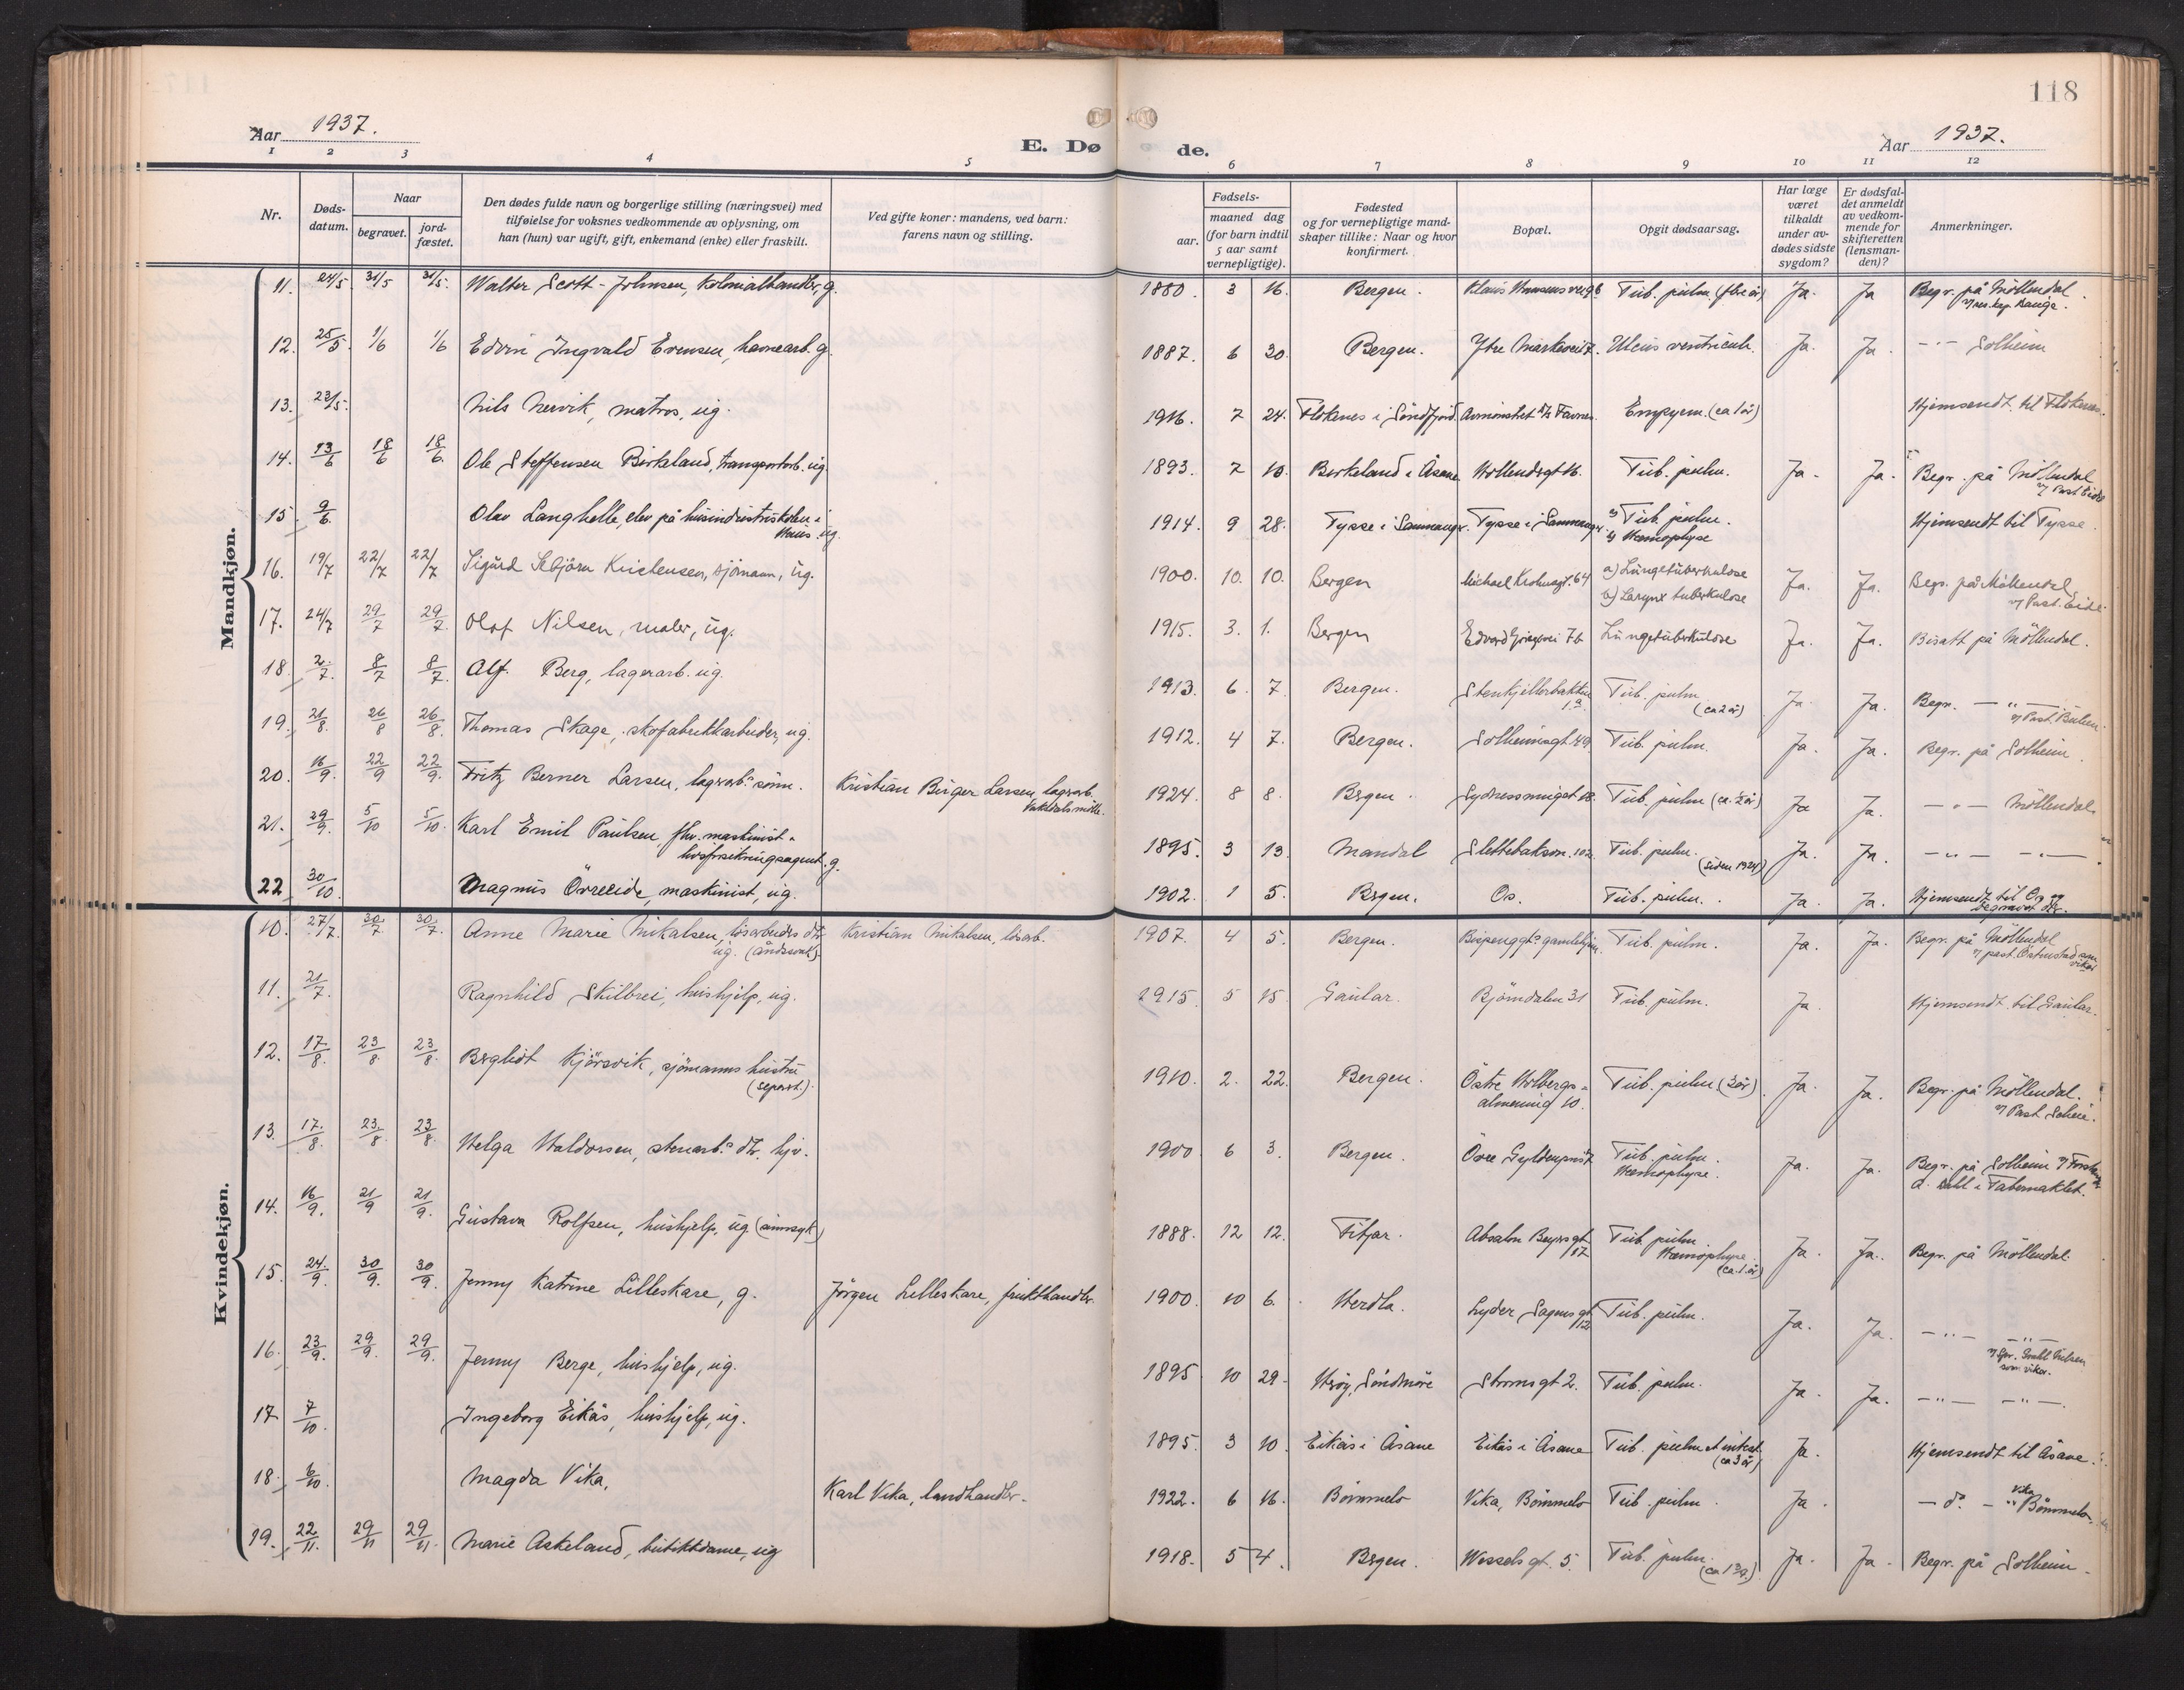 118
Aar 1937.
E. Dø de.
Aar 1937.
1 2 3 4 5 6 7 8 9 10 11 12
Nr.
Døds-
datum.
Naar
begravet.
jord-
fæstet.
Den dødes fulde navn og borgerlige stilling (næringsvei) med
tilføielse for voksnes vedkommende av oplysning, om
han (hun) var ugift, gift, enkemand (enke) eller fraskilt.
Ved gifte koner: mandens, ved barn:
farens navn og stilling.
Fødsels-
aar.
maaned dag
(for barn indtil
5 aar samt
vernepligtige).
Fødested
og for vernepligtige mand-
skaper tillike: Naar og hvor
konfirmert.
Bopæl.
Opgit dødsaarsag.
Har læge
været
tilkaldt
under av-
dødes sidste
sygdom?
Er dødsfal-
det anmeldt
av vedkom-
mende for
skifteretten
(lensman-
den)?
Anmerkninger.
Mandkjøn.
11. 24/5 31/5 31/5. Walter Scott-Johnsen, kolonialhandler, g. 1880. 3 16. Bergen. Tub. pulm. (flere år) Ja. Ja Begr. på Möllendal.
12. 25/5. 1/6 1/6 Edvin Ingvald Evensen, havnearb. g. 1887. 6 20. Bergen. Ytre Markevei 7. Ulcus ventriculi. Ja. Ja. -"- Solheim
13. 23/5. Nils Nervik, matros, ug. 1916. 7 24. Flokenes i Söndfjord. Tavnes. Empyem. (ca 1 år) Hjemsendt til Flokenes.
14. 13/6 18/6 18/6. Ole Steffensen Birkeland, transportarb. ug. 1893. 7 10. Birkeland i Åsane Hollendergt 16. Tub. pulm. Ja. Ja. Begr. på Möllendal
v/ Past. Eide
15. 9/6. Olav Langhelle, elev på husindustriskolen i
Haus. ug. 1914. 9 28. Tysse i Samnanger. Tysse i Samnanger. a) Tub. pulm.
b) Hæmophyse Hjemsendt til Tysse.
16. 19/7 22/7 22/7 Sigurd Sebjörn Kristensen, sjömann, ug. 1900. 10. 10. Bergen Michael Krohnsgt. 64 a) Lungetuberkulose
b) Larynx tuberkulose Ja. Ja. Begr. på Möllendal
v/ Past. Eide.
17. 24/7 29/7 29/7. Olaf Nilsen, maler, ug. 1915. 3. 1. Bergen Edvard Griegsvei 7b. Lungetuberkulose Ja. Ja. Bisatt på Möllendal.
18. 2/7. 8/7 8/7. Alf Berg, lagerarb. ug. 1913. 6. 7. Bergen. Stenkjellerbakken
1a. Tub. pulm
(ca 2 år) Ja. Ja. Begr. -"-
19. 21/8. 26/8 26/8. Thomas Skage, skofabrikkarbeider, ug. 1912. 4 7. Bergen. Solheimsgt 49. Tub. pulm. Ja. Ja. Begr. på Solheim.
20. 16/9. 22/9 22/9. Fritz Berner Larsen, lagerarb.s sönn. Kristian Birger Larsen, lagerarb.
Vaksdals mölle. 1924. 8 8. Bergen. Sydnessmuget 18. Tub. pulm (ca. 1/2 år) Ja Ja. -"- Möllendal.
21. 29/9. 5/10 5/10. Karl Emil Paulsen, fhv. maskinist -
livsforsikringsagent. g. 1895. 3 13. Mandal Slettebaksvn. 102. Tub. pulm.
(siden 1924) Ja. Ja. -"- -"-.
22 30/10. Magnus Övreeide, maskinist, ug. 1902. 1 5. Bergen. Os. Tub. pulm. Ja. Ja. Hjemsendt til Os og
begravet der.
Kvindekjøn.
10. 27/7. 30/7 30/7. Anne Marie Mikalsen, lösarbeiders dtr
ug. (åndssvak). Kristian Mikalsen, lösarb. 1907. 4 5. Bergen. Bispenggt. gamlehjem. Tub. pulm. Ja. Ja. Begr. på Möllendal
v/ past. Östenstad som
vikar
11. 21/7. Ragnhild Skilbrei, hushjelp, ug. 1915. 5 15. Gaular. Björndalen 31 Tub. pulm. Ja Hjemsendt til Gaular.
12. 17/8. 23/8. 23/8. Bergliot Kjörsvik, sjömanns hustru
(separt.). 1910. 2. 22. Bergen. Östre Holbergs-
almenning 10. Tub. pulm (3 år). Ja. Ja. Begr. på Möllendal.
13. 17./8. 23./8 23/8. Helga Haldorsen, stenarb.s dtr. hjv. 1900. 6 3. Bergen. Övre Tub. pulm.
Hæmophyse. Ja. Ja. Begr. på Solheim v/ Forst.
Dahl i Tabernaklet.
14. 16/9. 21/9 21/9. Gustava Rolfsen, hushjelp, ug. (sinnsyk) 1888. 12 12. Fitjar. Absalon Beyersgt.
17. Tub. pulm.
Hæmophyse.
(ca. 1. år) Ja. Ja. Begr. på Möllendal.
15. 24./9. 30/9. 30/9. Jenny Katrine Lilleskare, g. Jörgen Lilleskare, frukthandler. 1900. 10 6. Herdla. Lyder Sagensgt
12 Tub. pulm. Ja. Ja. -"- -"-
som vikar.
16. 23/9. 29/9. 29/9. Jenny Berge, hushjelp, ug. 1895 10 29. Heröy, Söndmöre Stromsgt 2. Tub. pulm. Ja. Ja. -"- -"-.
17 7/10. Ingeborg Eikås, hushjelp, ug. 1895. 3 10. Eikås i Åsane Eikås i Åsane Tub. pulm et intest.
(ca 3 år) Ja. Hjemsendt til Åsane.
18. 6/10. Magda Vika, Karl Vika, landhandler. 1922. 6 16. Bömmelo Vika, Bömmelo Tub. pulm. Ja. - do. - " Vika
Bömmelo.
19. 22/11. 29/11 29/11. Marie Askeland, butikkdame, ug 1918. 5 4. Bergen. Wesselsgt. 5. Tub. pulm. Ja. Ja. Begr. på Solheim.